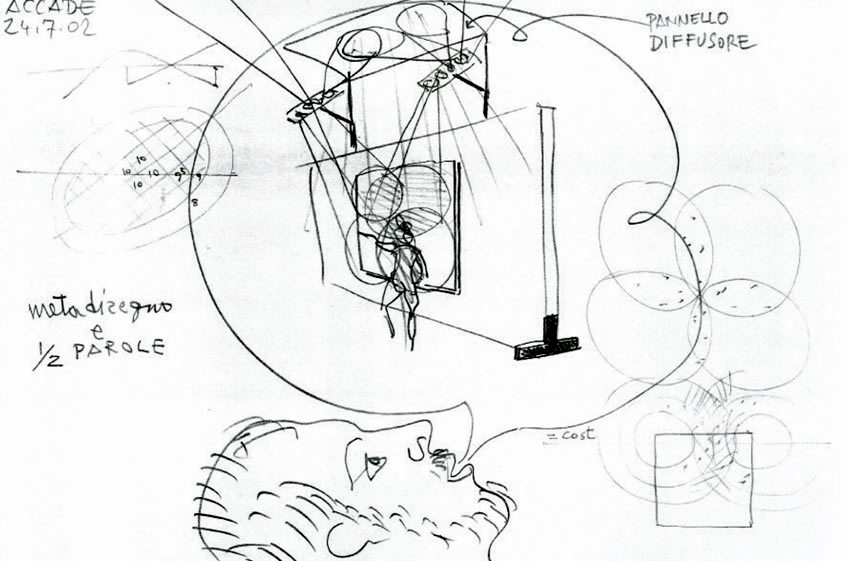 ACCADE
24.7.02
PANNELLO
DIFFUSORE
10
10
10
10
95
9
8
metadisegno
e
1/2 PAROLE
= cost